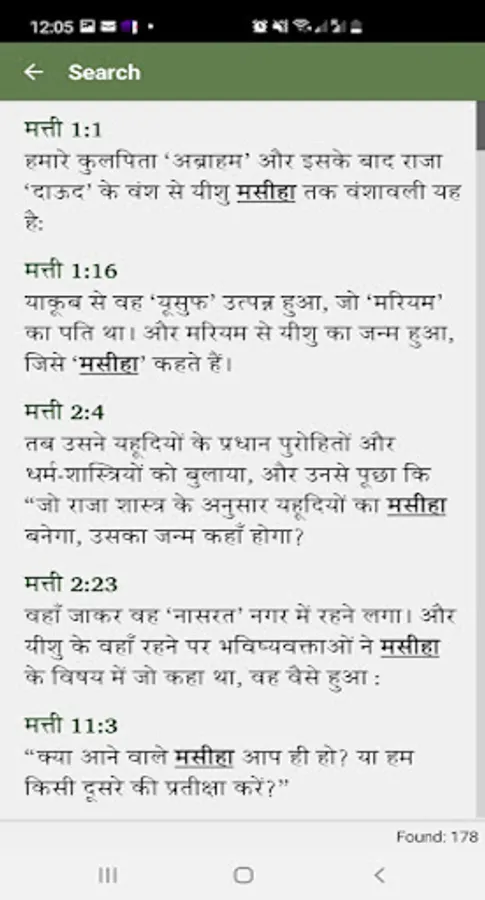 12:05
Search
मत्ती 1:1
हमारे कुलपिता ‘अब्राहम’ और इसके बाद राजा
‘दाऊद’ के वंश से यीशु मसीहा तक वंशावली यह
है:
मत्ती 1:16
याकूब से वह ‘यूसुफ’ उत्पन्न हुआ, जो ‘मरियम’
का पति था। और मरियम से यीशु का जन्म हुआ,
जिसे ‘मसीहा’ कहते हैं।
मत्ती 2:4
तब उसने यहूदियों के प्रधान पुरोहितों और
धर्म-शास्त्रियों को बुलाया, और उनसे पूछा कि
“जो राजा शास्त्र के अनुसार यहूदियों का मसीहा
बनेगा, उसका जन्म कहाँ होगा?
मत्ती 2:23
वहाँ जाकर वह ‘नासरत’ नगर में रहने लगा। और
यीशु के वहाँ रहने पर भविष्यवक्ताओं ने मसीहा
के विषय में जो कहा था, वह वैसे हुआ :
मत्ती 11:3
“क्या आने वाले मसीहा आप ही हो? या हम
किसी दूसरे की प्रतीक्षा करें?”
Found: 178